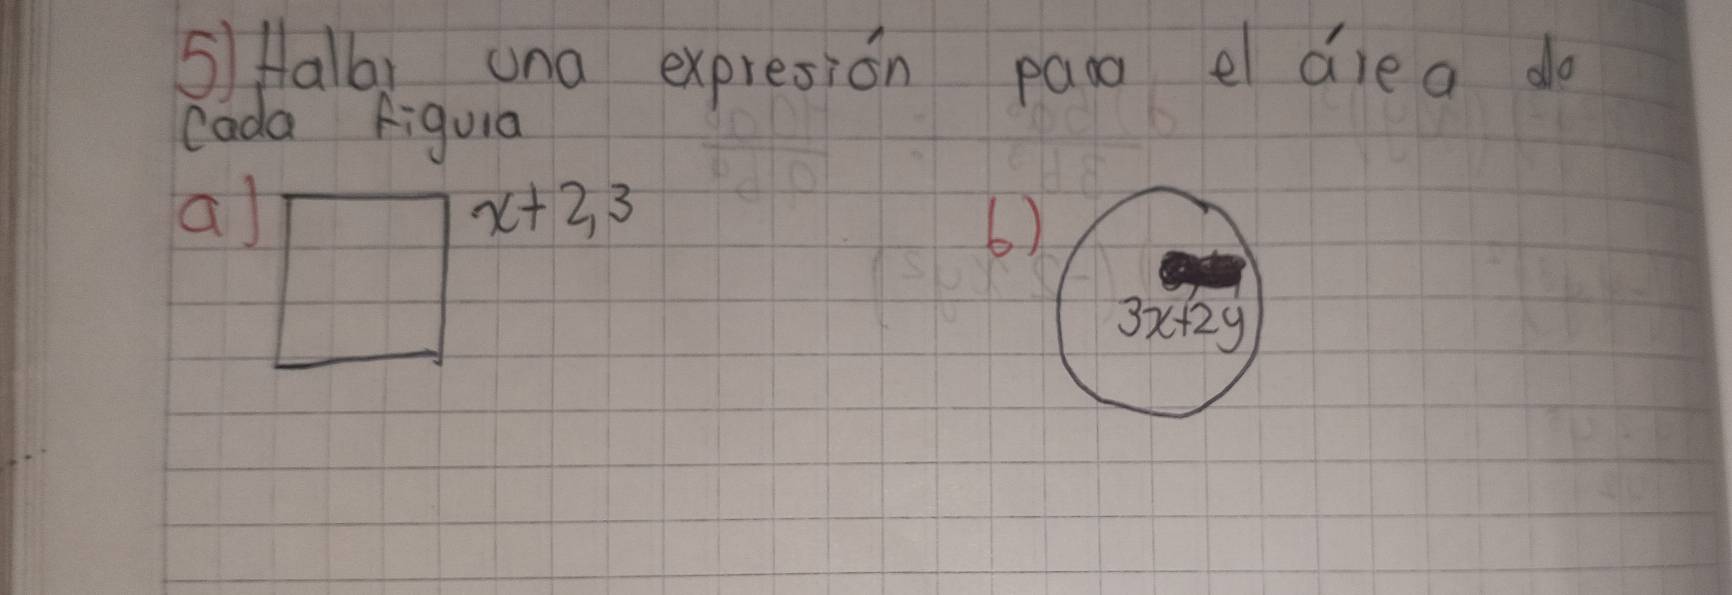 5) Hallar una expresión para el área de
cada figura
a) x+2,3
b) 3x+2y